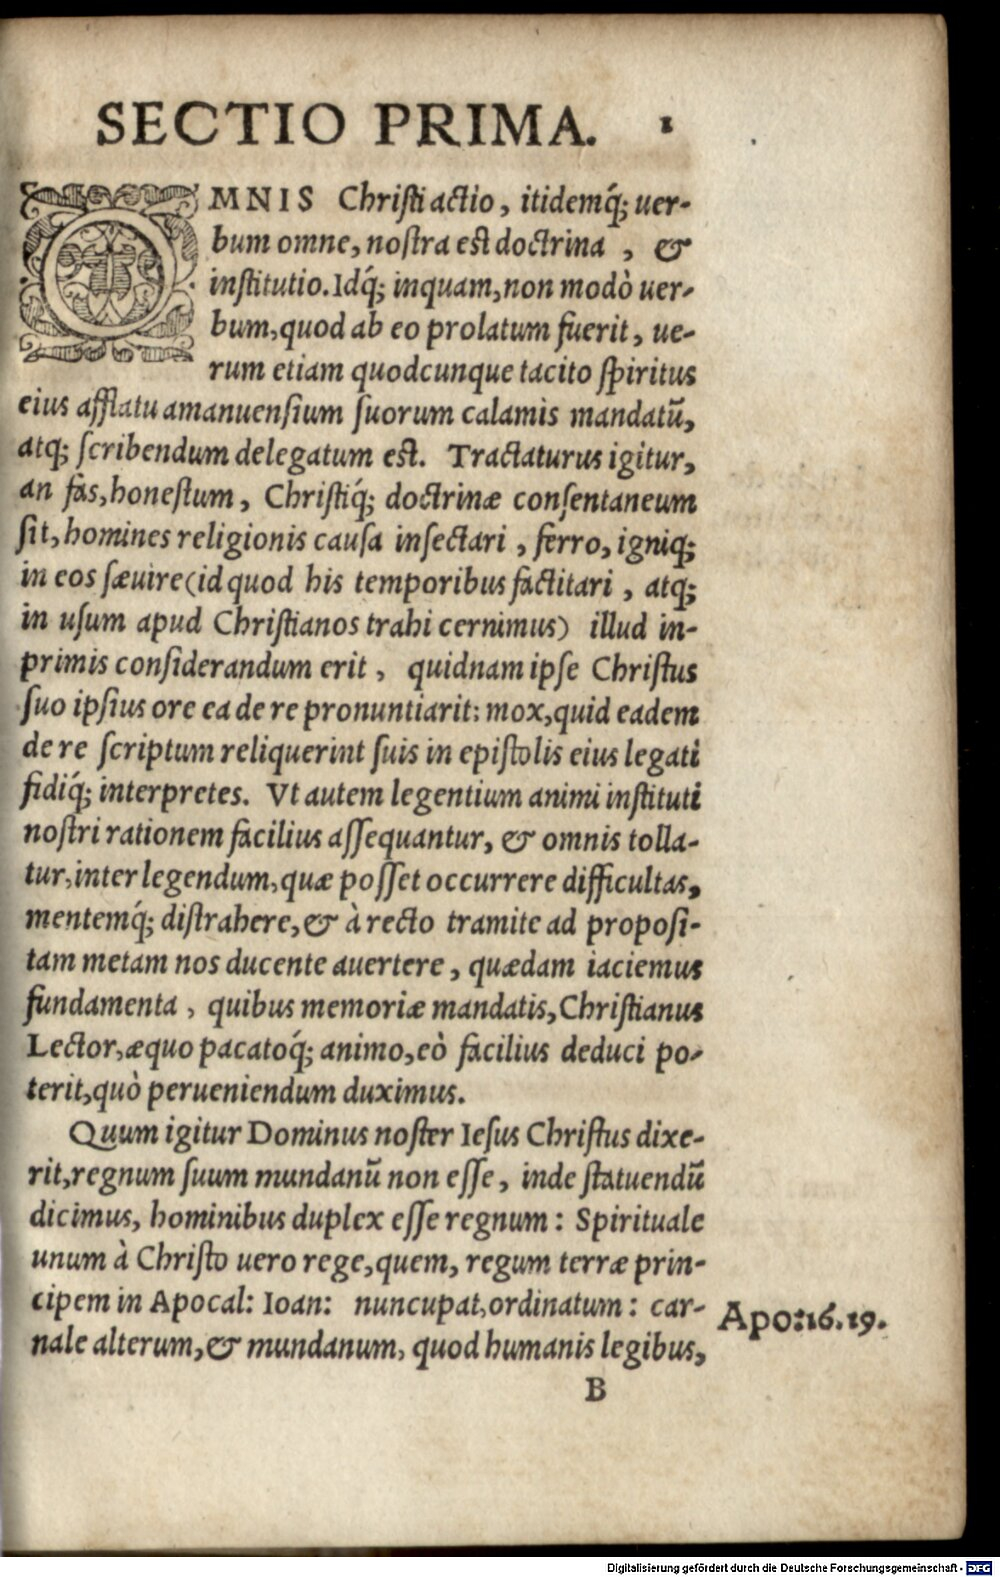 SECTIO PRIMA. 1
OMNIS Christi actio, itidemq́; uer-
bum omne, nostra est doctrina, &
institutio. Idq́; inquam, non modò uer-
bum, quod ab eo prolatum fuerit, ue-
rum etiam quodcunque tacito spiritus
eius afflatu amanuensium suorum calamis mandatū,
atq; scribendum delegatum est. Tractaturus igitur,
an fas, honestum, Christiq́; doctrinæ consentaneum
sit, homines religionis causa insectari, ferro, igniq;
in eos sæuire (id quod his temporibus factitari, atq;
in usum apud Christianos trahi cernimus) illud in-
primis considerandum erit, quidnam ipse Christus
suo ipsius ore ea de re pronuntiarit: mox, quid eadem
de re scriptum reliquerint suis in epistolis eius legati
fidiq́; interpretes. Vt autem legentium animi instituti
nostri rationem facilius assequantur, & omnis tolla-
tur, inter legendum, quæ posset occurrere difficultas,
mentemq́; distrahere, & à recto tramite ad proposi-
tam metam nos ducente auertere, quædam iaciemus
fundamenta, quibus memoriæ mandatis, Christianus
Lector, æquo pacatoq́; animo, eò facilius deduci po-
terit, quò perueniendum duximus.
Quum igitur Dominus noster Iesus Christus dixe-
rit, regnum suum mundanū non esse, inde statuendū
dicimus, hominibus duplex esse regnum: Spirituale
unum à Christo uero rege, quem, regum terræ prin-
cipem in Apocal: Ioan: nuncupat, ordinatum: car-
nale alterum, & mundanum, quod humanis legibus,
Apo: 16. 19.
B
Digitalisierung gefördert durch die Deutsche Forschungsgemeinschaft - DFG